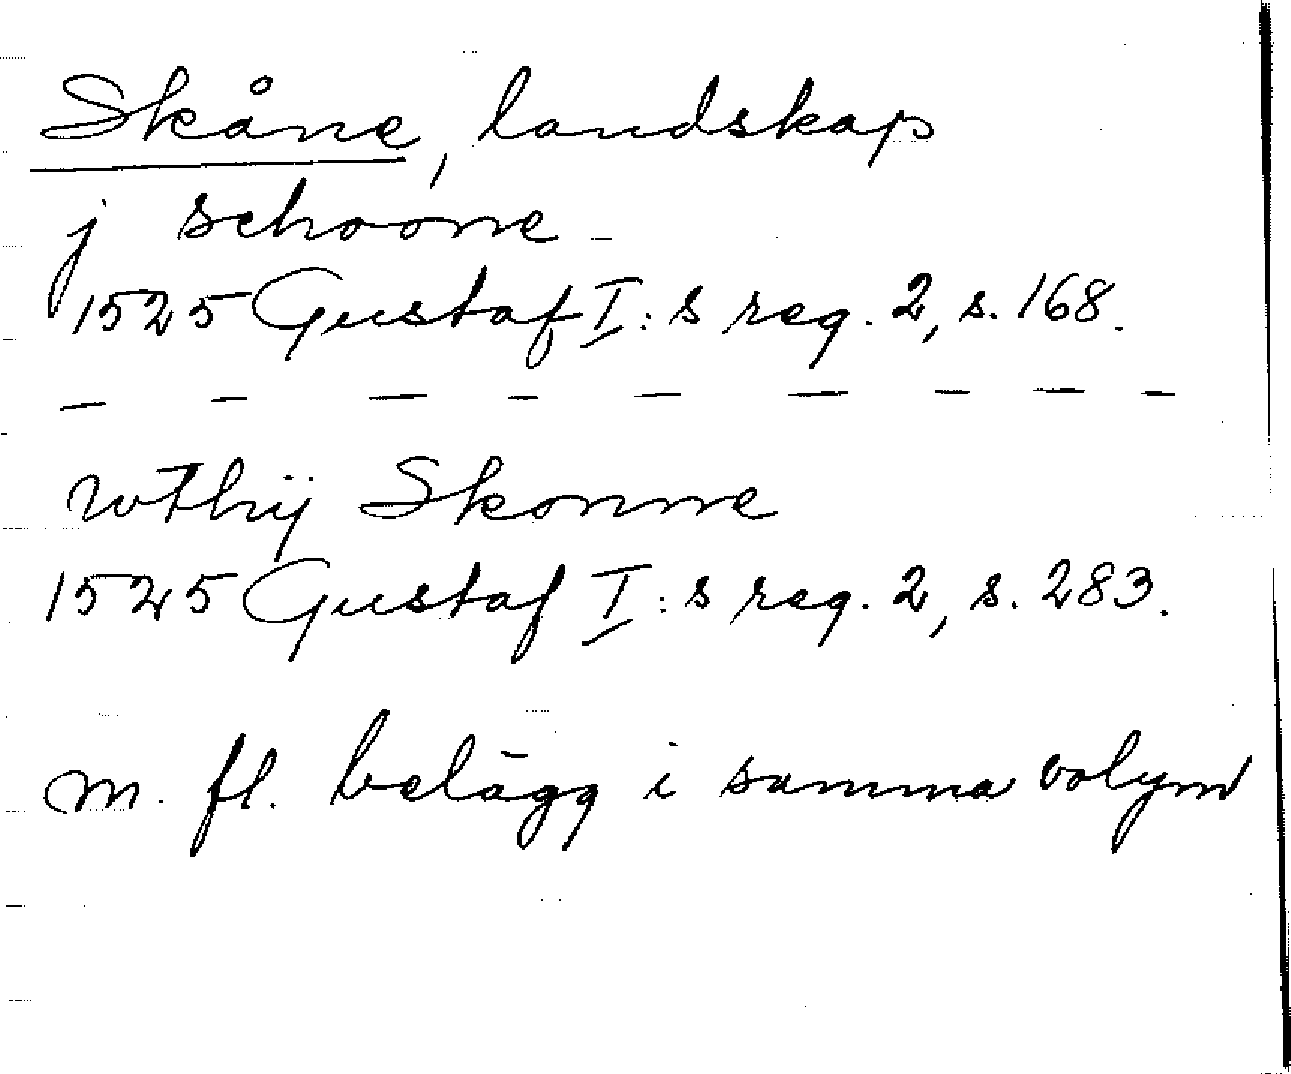 Skåne, landskap
j schoone
1525 Gustaf I:s reg. 2, s. 168.
— — — — — — — — —
wthij Skonne
1525 Gustaf I:s reg. 2, s. 283.
m. fl. belägg i samma volym